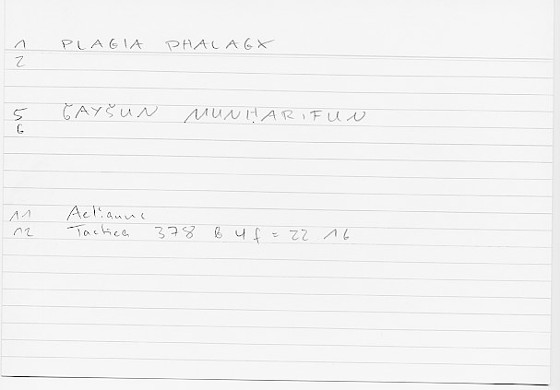 1 PLAGIA PHALAGX
2
5 ǦAYŠUN MUNḤARIFUN
6
11 Aelianus
12 Tactica 378 B 4 f = 22 16